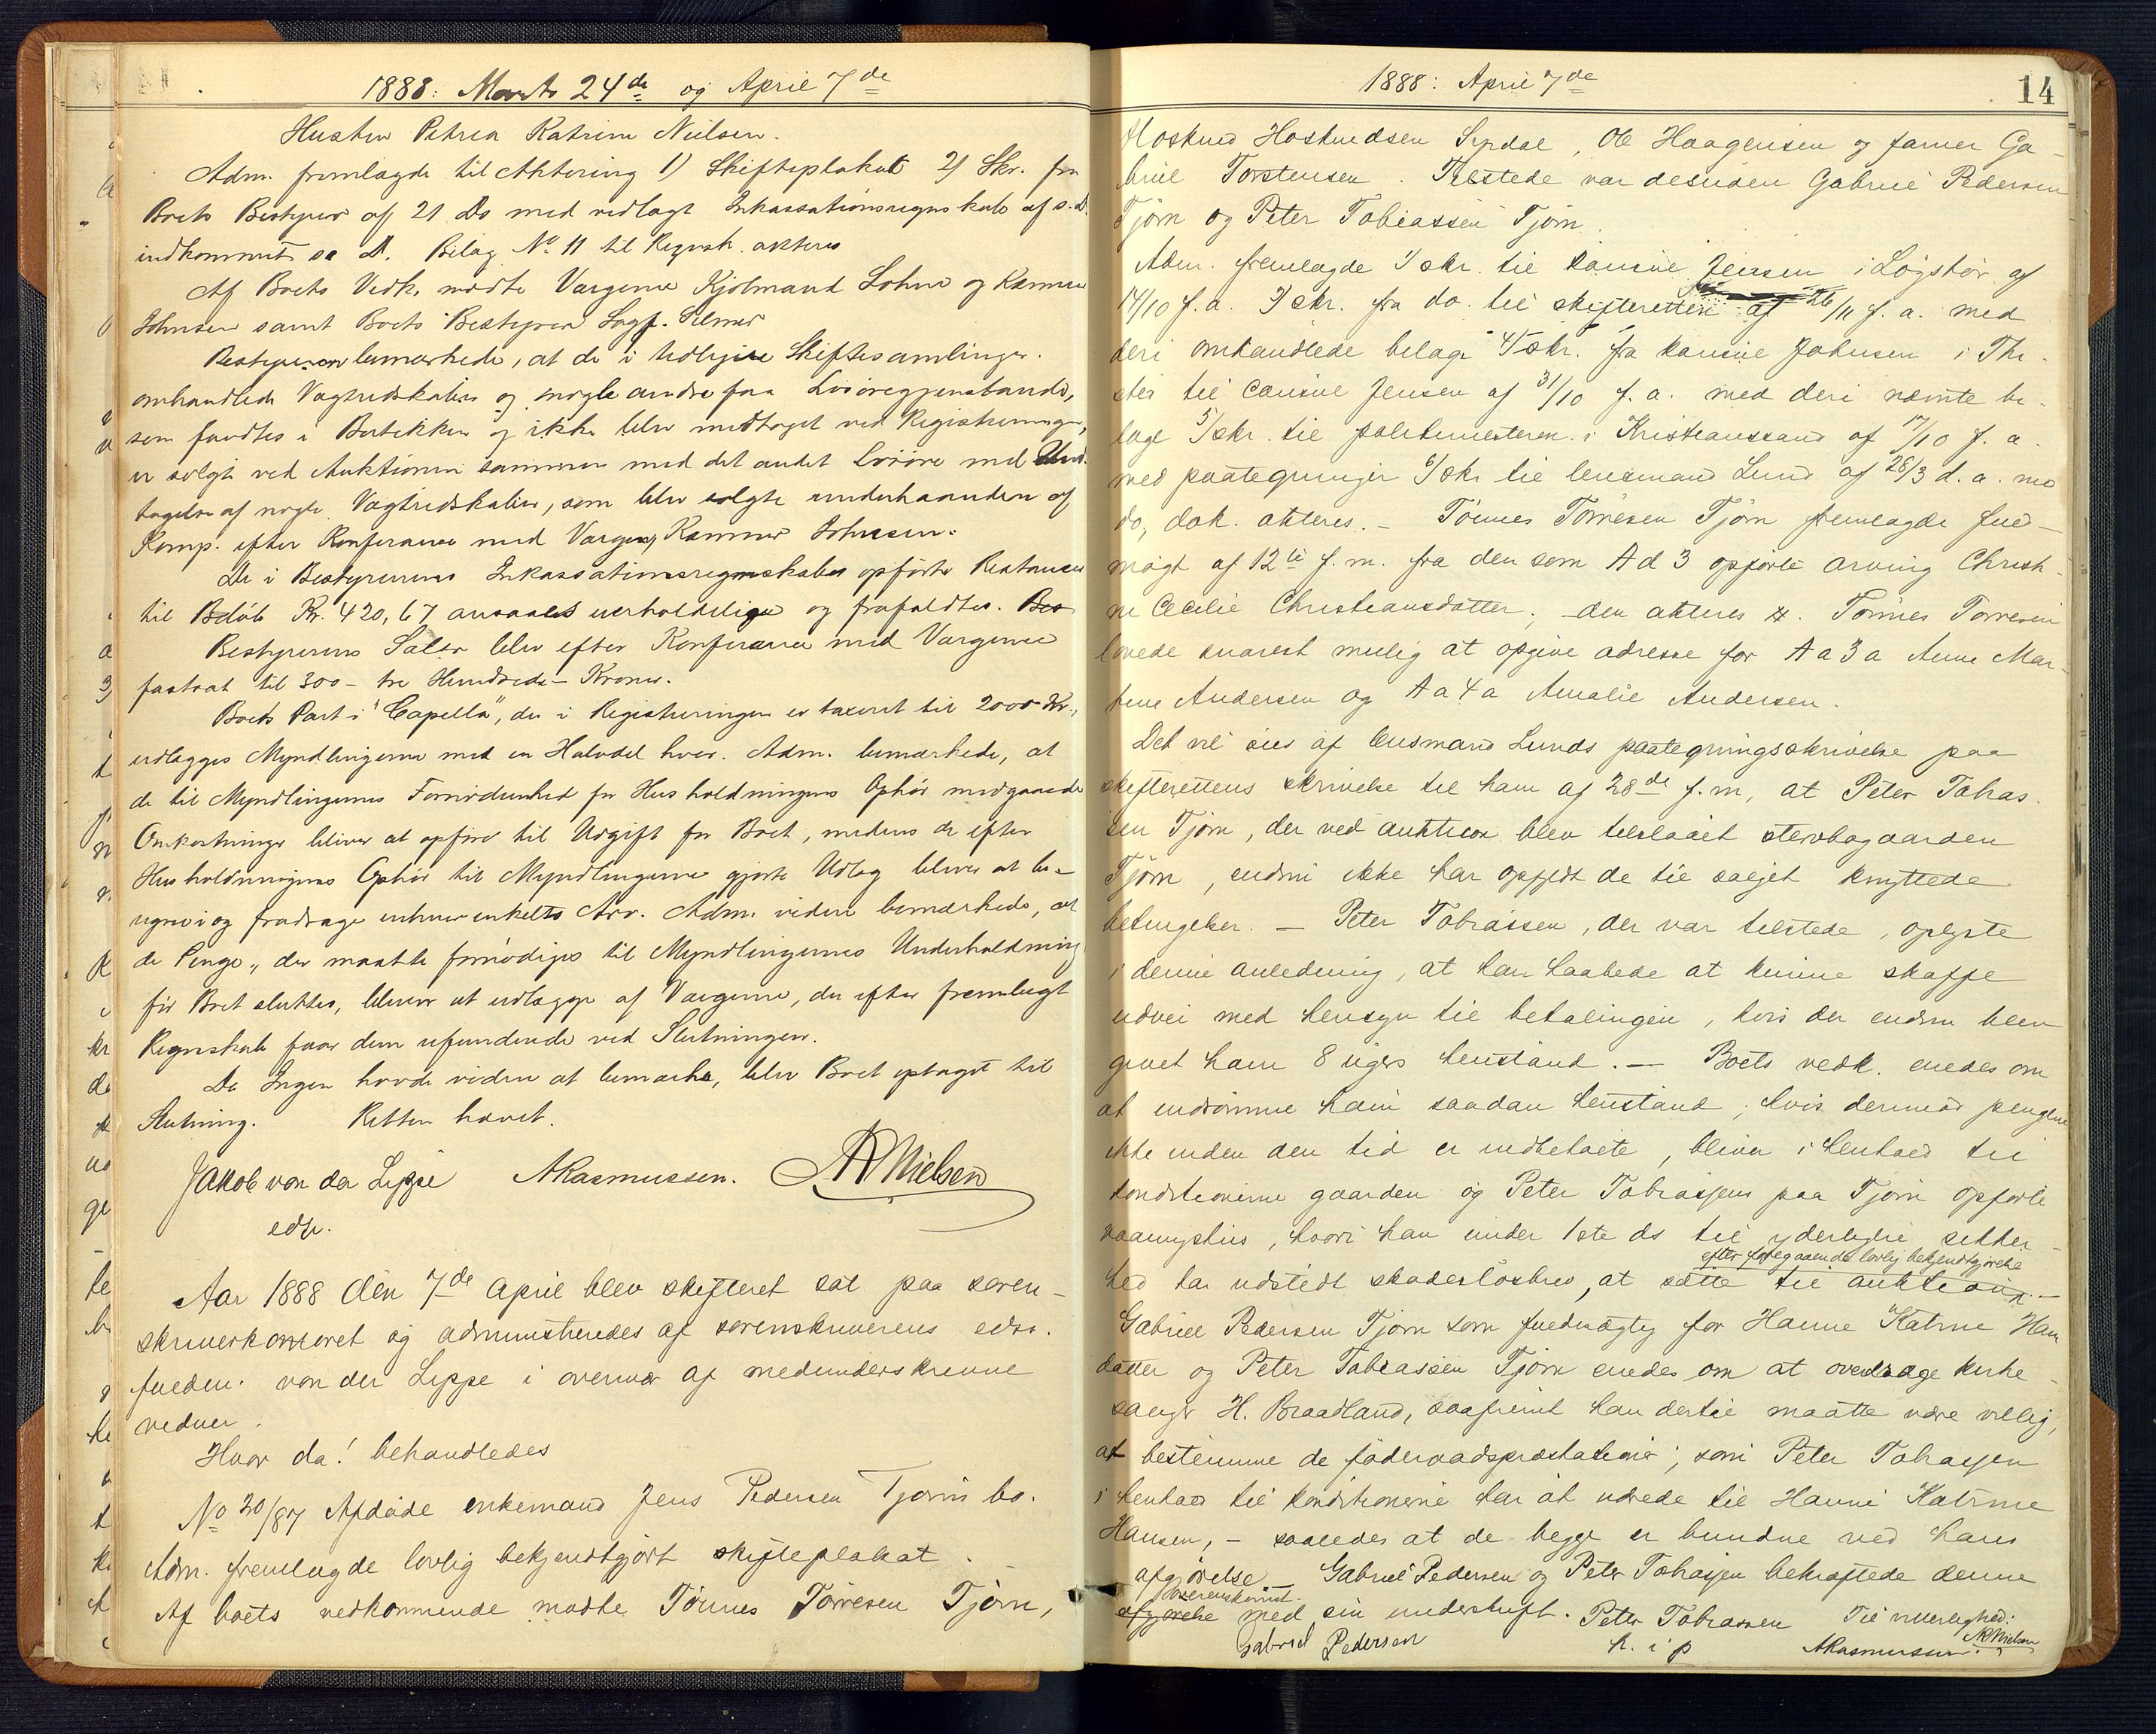 1888: Marts 24de og April 7de
Hustru Petrea Katrine Nielsen.
Adm. fremlagde til Aktering 1) Skifteplakat 2) Skr. fra
Boets Bestyrer af 21 Ds med vedlagt Inkassationsregnskab af s. D.
indkommet s. D. Bilag No 11 til Regnsk. akteres
Af Boets Vedk. mødte Værgerne Kjølmand Lohne og Kæmner
Johnsen samt Boets Bestyrer Sagf. Selmer
Bestyreren bemærkede, at de i tidligere Skiftesamlinger
omhandlede Vægtredskaber og nogle andre faa Løsøregjenstande,
som fandtes i Butikken og ikke blev medtaget ved Registreringen,
er solgt ved Auktionen sammen med det andet Løsøre med Und-
tagelse af nogle Vægtredskaber, som blev solgte underhaanden af
Komp. efter Konferance med Værgen, Kæmner Johnsen.
De i Bestyrerens Inkassationsregnskaber opførte Restancer
til Beløb Kr. 420,67 ansaaes uerholdelige og frafaldtes.
Bestyrerens Salær blev efter Konferance med Værgerne
fastsat til 300 – tre Hundrede – Kroner.
Boets Part i "Capella", der i Registreringen er taxeret til 2000 Kr.,
udlægges Myndlingerne med en Halvdel hver. Adm. bemærkede, at
de til Myndlingernes Fornødenhed før Husholdningens Ophør medgaaede
Omkostninger bliver at opføre til Udgift for Boet, medens de efter
Husholdningens Ophør til Myndlingerne gjorte Udlæg bliver at be-
regne i og fradrage enhver enkelts Arv. Adm. videre bemærkede, at
de Penge, der maatte fornødiges til Myndlingernes Underholdning
før Boet sluttes, bliver at udlægge af Værgerne, der efter fremlagt
Regnskab faar dem refunderede ved Slutningen.
Da Ingen havde videre at bemærke, blev Boet optaget til
Slutning. Retten hævet.
Jakob von der Lippe ARasmussen. AR Nielsen
edsv.
Aar 1888 den 7de april blev skifteret sat paa soren-
skriverkontoret og administreredes af sorenskriverens edsv.
fuldm. von der Lippe i overvær af medunderskrevne
vidner.
Hvor da! behandledes
No 20/87 Afdøde enkemand Jens Pedersen Tjørns bo.
Adm. fremlagde lovlig bekjendtgjort skifteplakat.
Af boets vedkommende mødte Tønnes Tørresen Tjørn,
1888: April 7de
14
Hoskuld Hoskuldsen Sirdal, Ole Haagensen og farver Ga-
briel Torstensen. Tilstede var desuden Gabriel Pedersen
Tjørn og Peter Tobiassen Tjørn.
Adm. fremlagde 1) skr. til konsul Jensen i Løgstør af
14/10 f. a. 3) skr. fra do. til skifteretten af 26/11 f. a. med
deri omhandlede bilage 4) skr. fra konsul Johnsen i Thi-
sted til consul Jensen af 31/10 f. a. med deri nævnte bi-
lage 5) skr. til politimesteren i Kristianssand af 17/10 f. a.
med paategninger 6) skr til lensmand Lund af 28/3 d. a. med
do, dok. akteres. – Tønnes Tørresen Tjørn fremlagde fuld-
magt af 12te f. m. fra den som Ad 3 opførte arving Christi-
ne Cecilie Christiansdatter; den akteres. Tønnes Tørresen
lovede snarest mulig at opgive adresse for Aa3a Anne Mar-
tine Andersen og Aa4a Amalie Andersen.
Det vil sees af lensmand Lunds paategningsskrivelse paa
skifterettens skrivelse til ham af 28de f. m., at Peter Tobias-
sen Tjørn, der ved auktion blev tilslaaet stervbogaarden
Tjørn, endnu ikke har opfyldt de til salget knyttede
betingelser. – Peter Tobiassen, der var tilstede, oplyste
i denne anledning, at han haabede at kunne skaffe
udvei med hensyn til betalingen, hvis der endnu blev
givet ham 8 ugers henstand. – Boets vedk. enedes om
at indrømme ham saadan henstand; hvis dermod pengene
ikke inden den tid er indbetalte, bliver i henhold til
konditionerne gaarden og Peter Tobiassens paa Tjørn opførte
vaaningshus, hvori han under 1ste ds til yderligere sikker-
efter foregaaende lovlig bekjendtgjørelse
hed har udstedt skadesløsbrev, at sætte til auktion. –
Gabriel Pedersen Tjørn som fuldmægtig for Hanne Katrine Hans-
datter og Peter Tobiassen Tjørn enedes om at overdrage kirke-
sanger H. Braadland, saafremt han dertil maatte være villig,
at bestemme de føderaadspræstationer, som Peter Tobiassen
i henhold til konditionerne har at udrede til Hanne Katrine
Hansen, – saaledes at de begge er bundne ved hans
afgjørelse. Gabriel Pedersen og Peter Tobiassen bekræftede denne
overenskomst
afgjørelse med sin underskrift. Peter Tobiassen Til vitterlighed:
Gabriel Pedersen h. i p ARasmussen. AR Nielsen